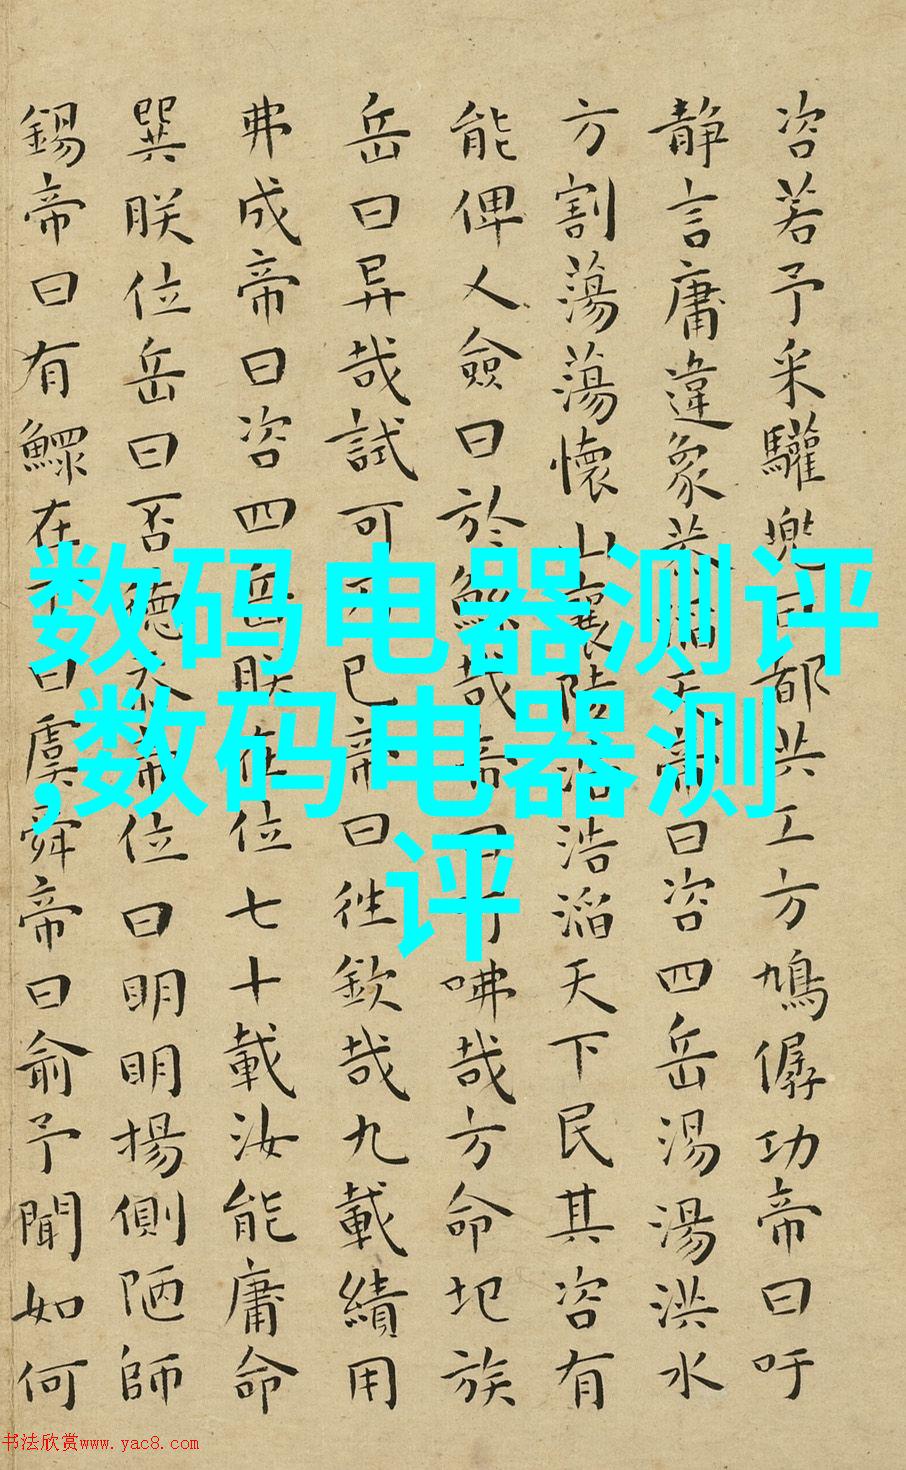 咨若予采驩兜曰都共工方鳩僝功帝曰吁
静言庸違象恭滔天帝曰咨四岳湯湯洪水
方割蕩蕩懷山襄陵浩浩滔天下民其咨有
能俾乂僉曰於鯀哉帝曰吁咈哉方命圮族
岳曰异哉試可乃已帝曰往欽哉九載績用
弗成帝曰咨四岳朕在位七十載汝能庸命
巽朕位岳曰否德忝帝位曰明明揚側陋師
錫帝曰有鰥在下曰虞舜帝曰俞予聞如何
数码电器测评
,数码电器测
评
书法欣赏www.yac8.com